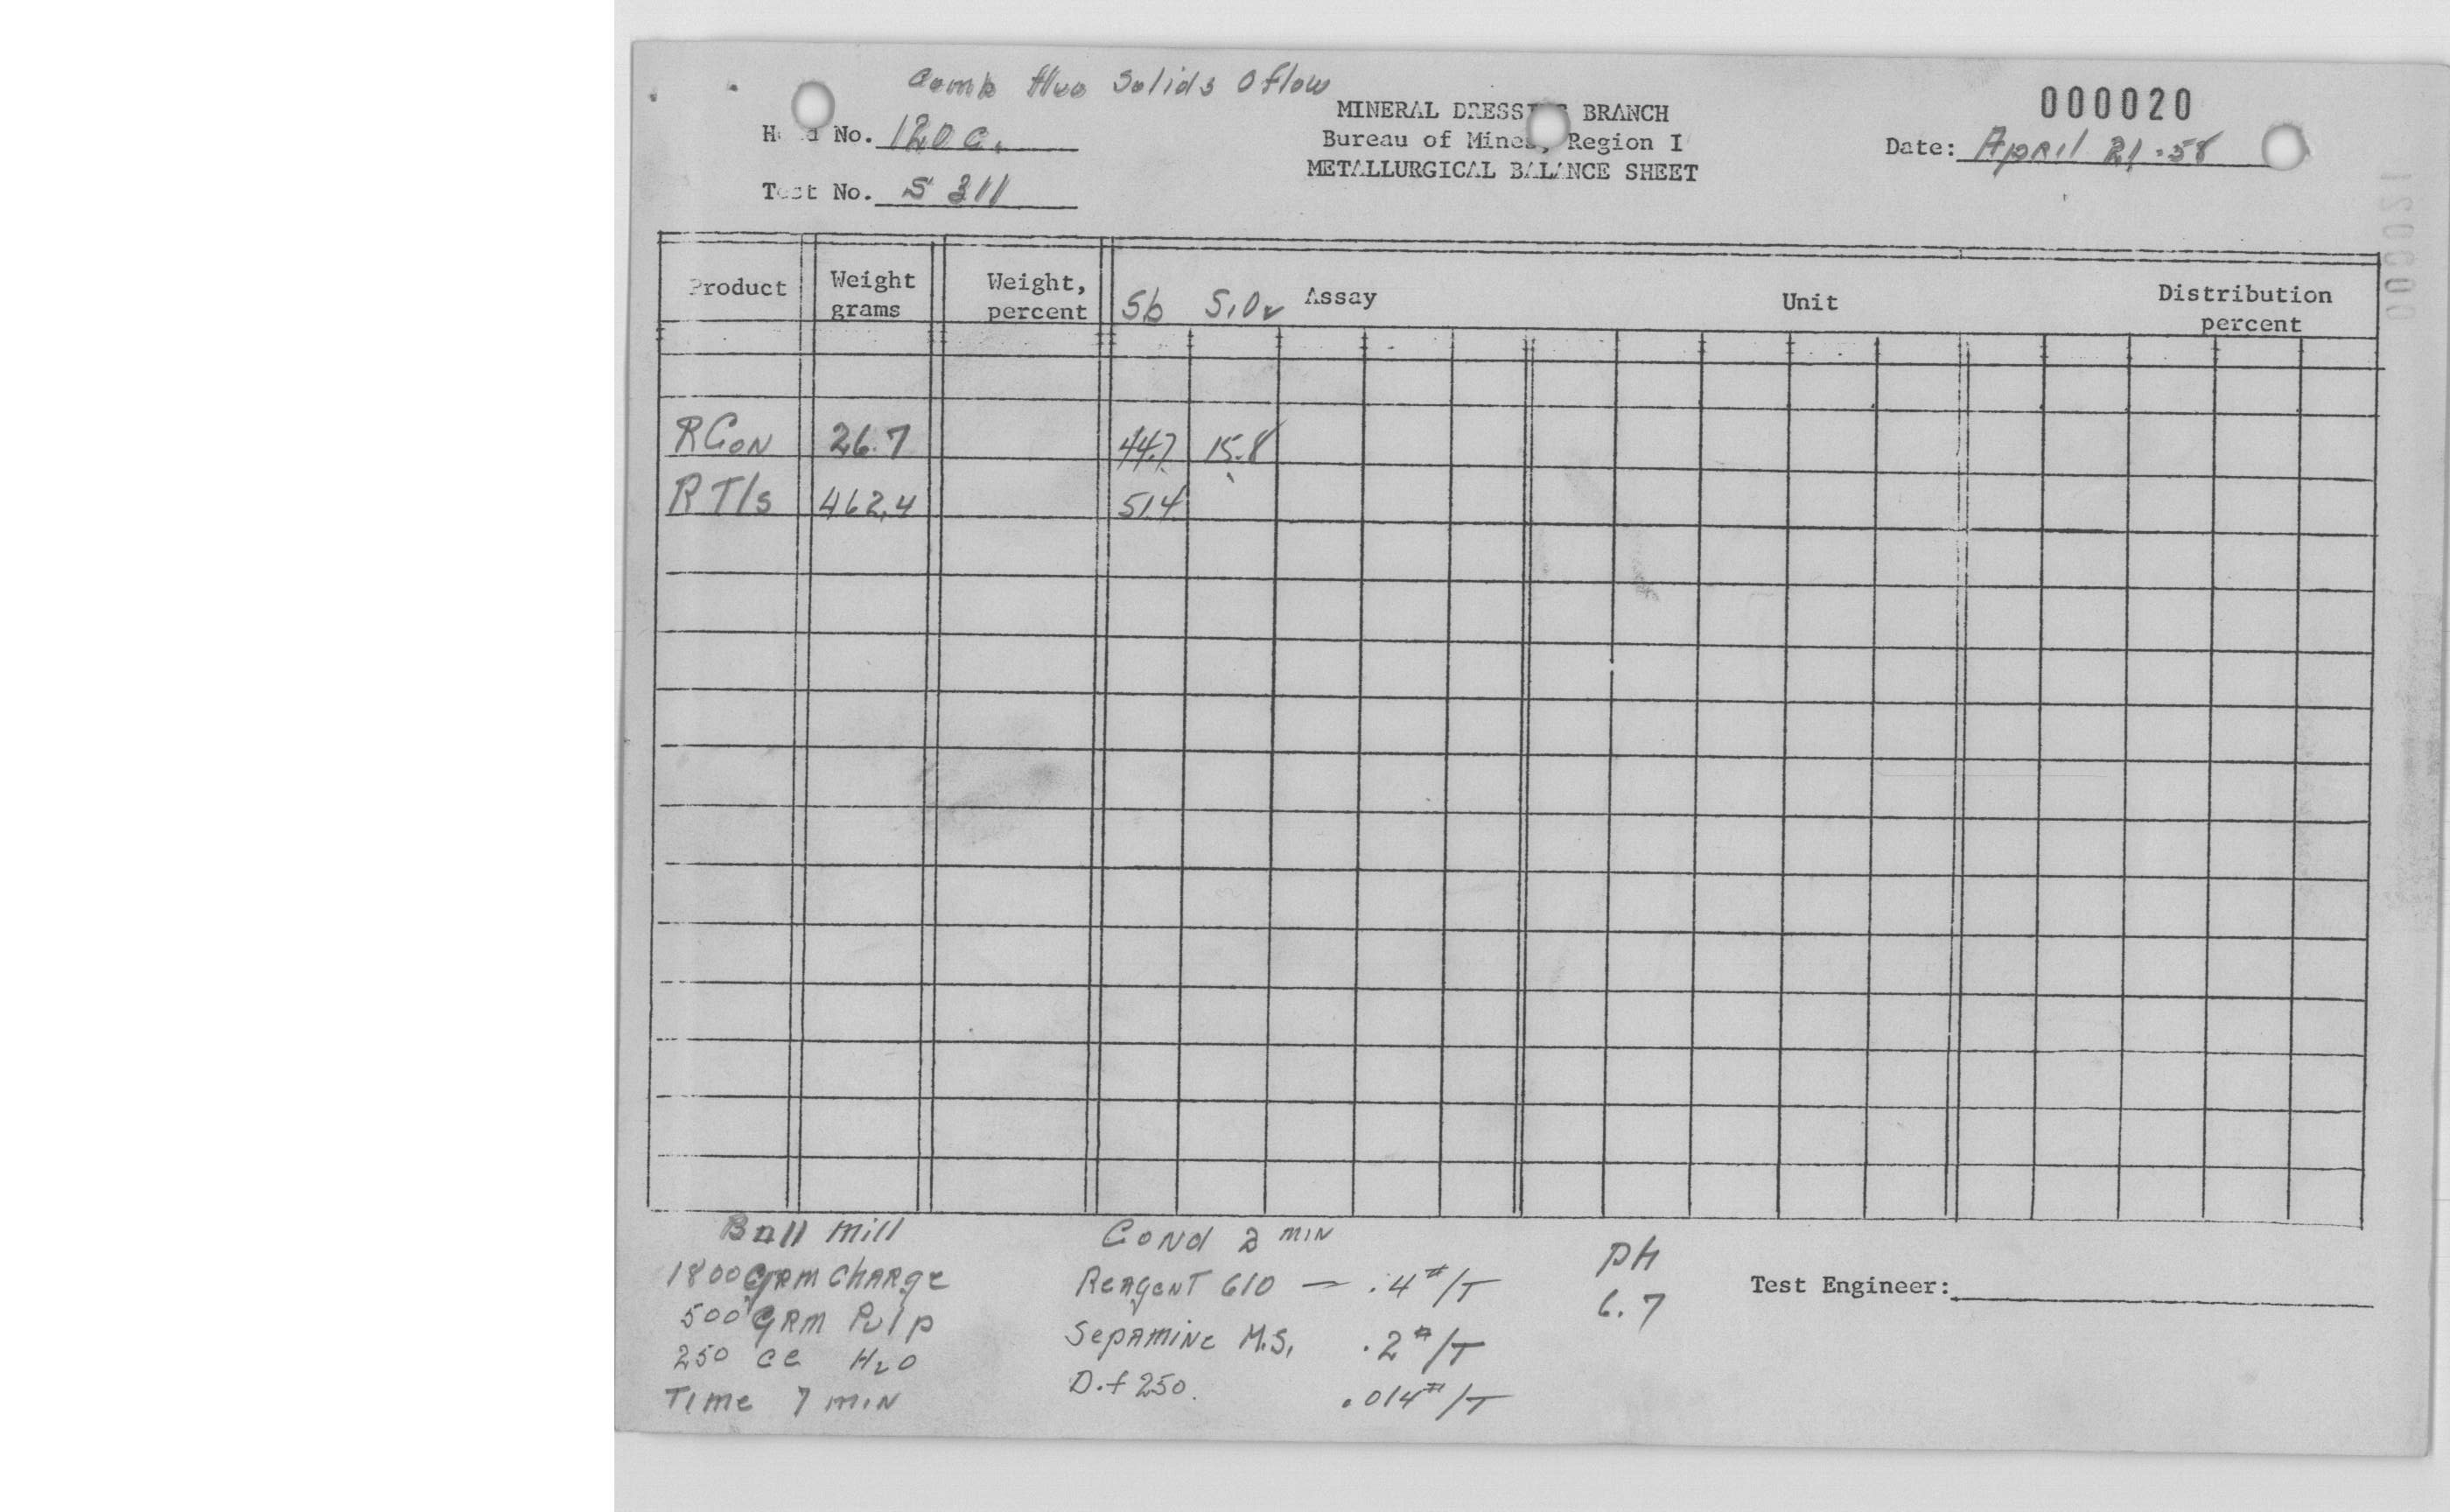 Comb flue Solids O flow
000020
MINERAL DRESSING BRANCH
Head No. 120 C.
Bureau of Mines, Region I
Date: April 21-58
METALLURGICAL BALANCE SHEET
Test No. S 311
Product Weight grams Weight, percent Sb SiO2 Assay Unit Distribution percent
R Con 26.7 44.7 15.8
R Tls 462.4 51.4
Ball Mill
1800 GRM Charge
500 GRM Pulp
250 cc H2O
Time 7 min
Cond 2 min
Reagent 610 — .4#/T
Sepamine M.S. .2#/T
D.f 250. .014#/T
pH
6.7
Test Engineer:
000021